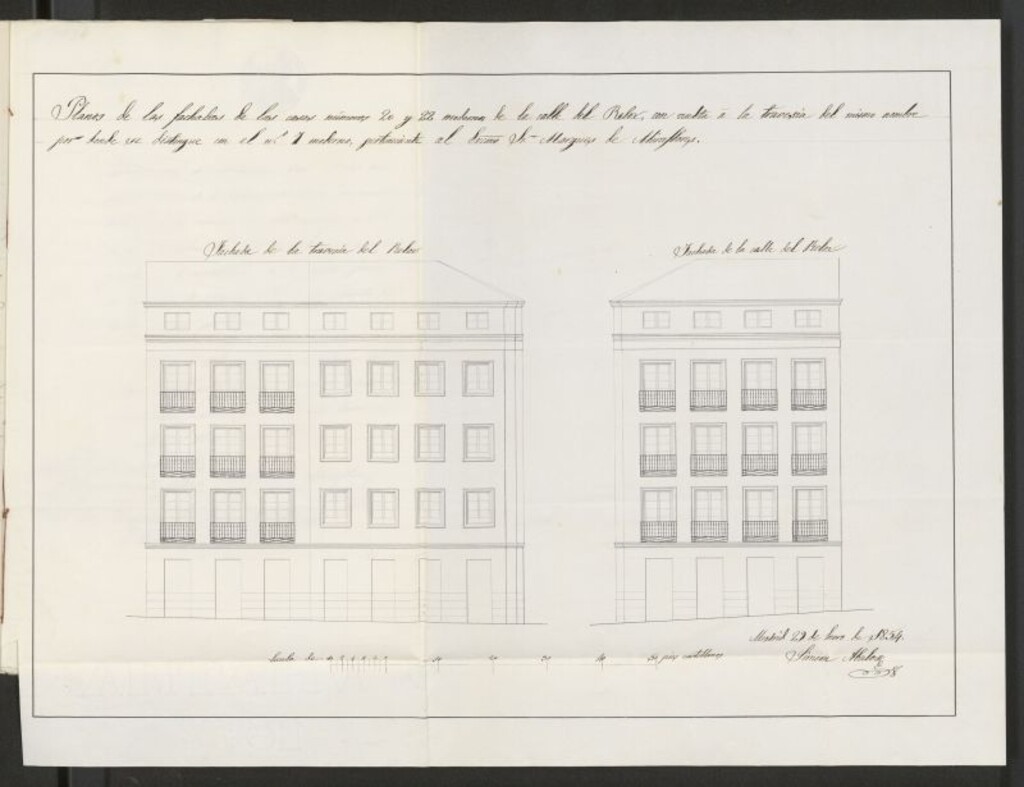 Planos de las fachadas de las casas números 20 y 22 moderno de la calle del Relox, con vuelta á la travesía del mismo nombre
por donde se distingue con el n.º 7 moderno, perteneciente al Excmo Sr. Marques de Miraflores.
Fachada de la travesía del Relox
Fachada de la calle del Relox
Madrid 29 de Enero de 1854.
Escala de 10 20 30 40 50 pies castellanos
Simeon